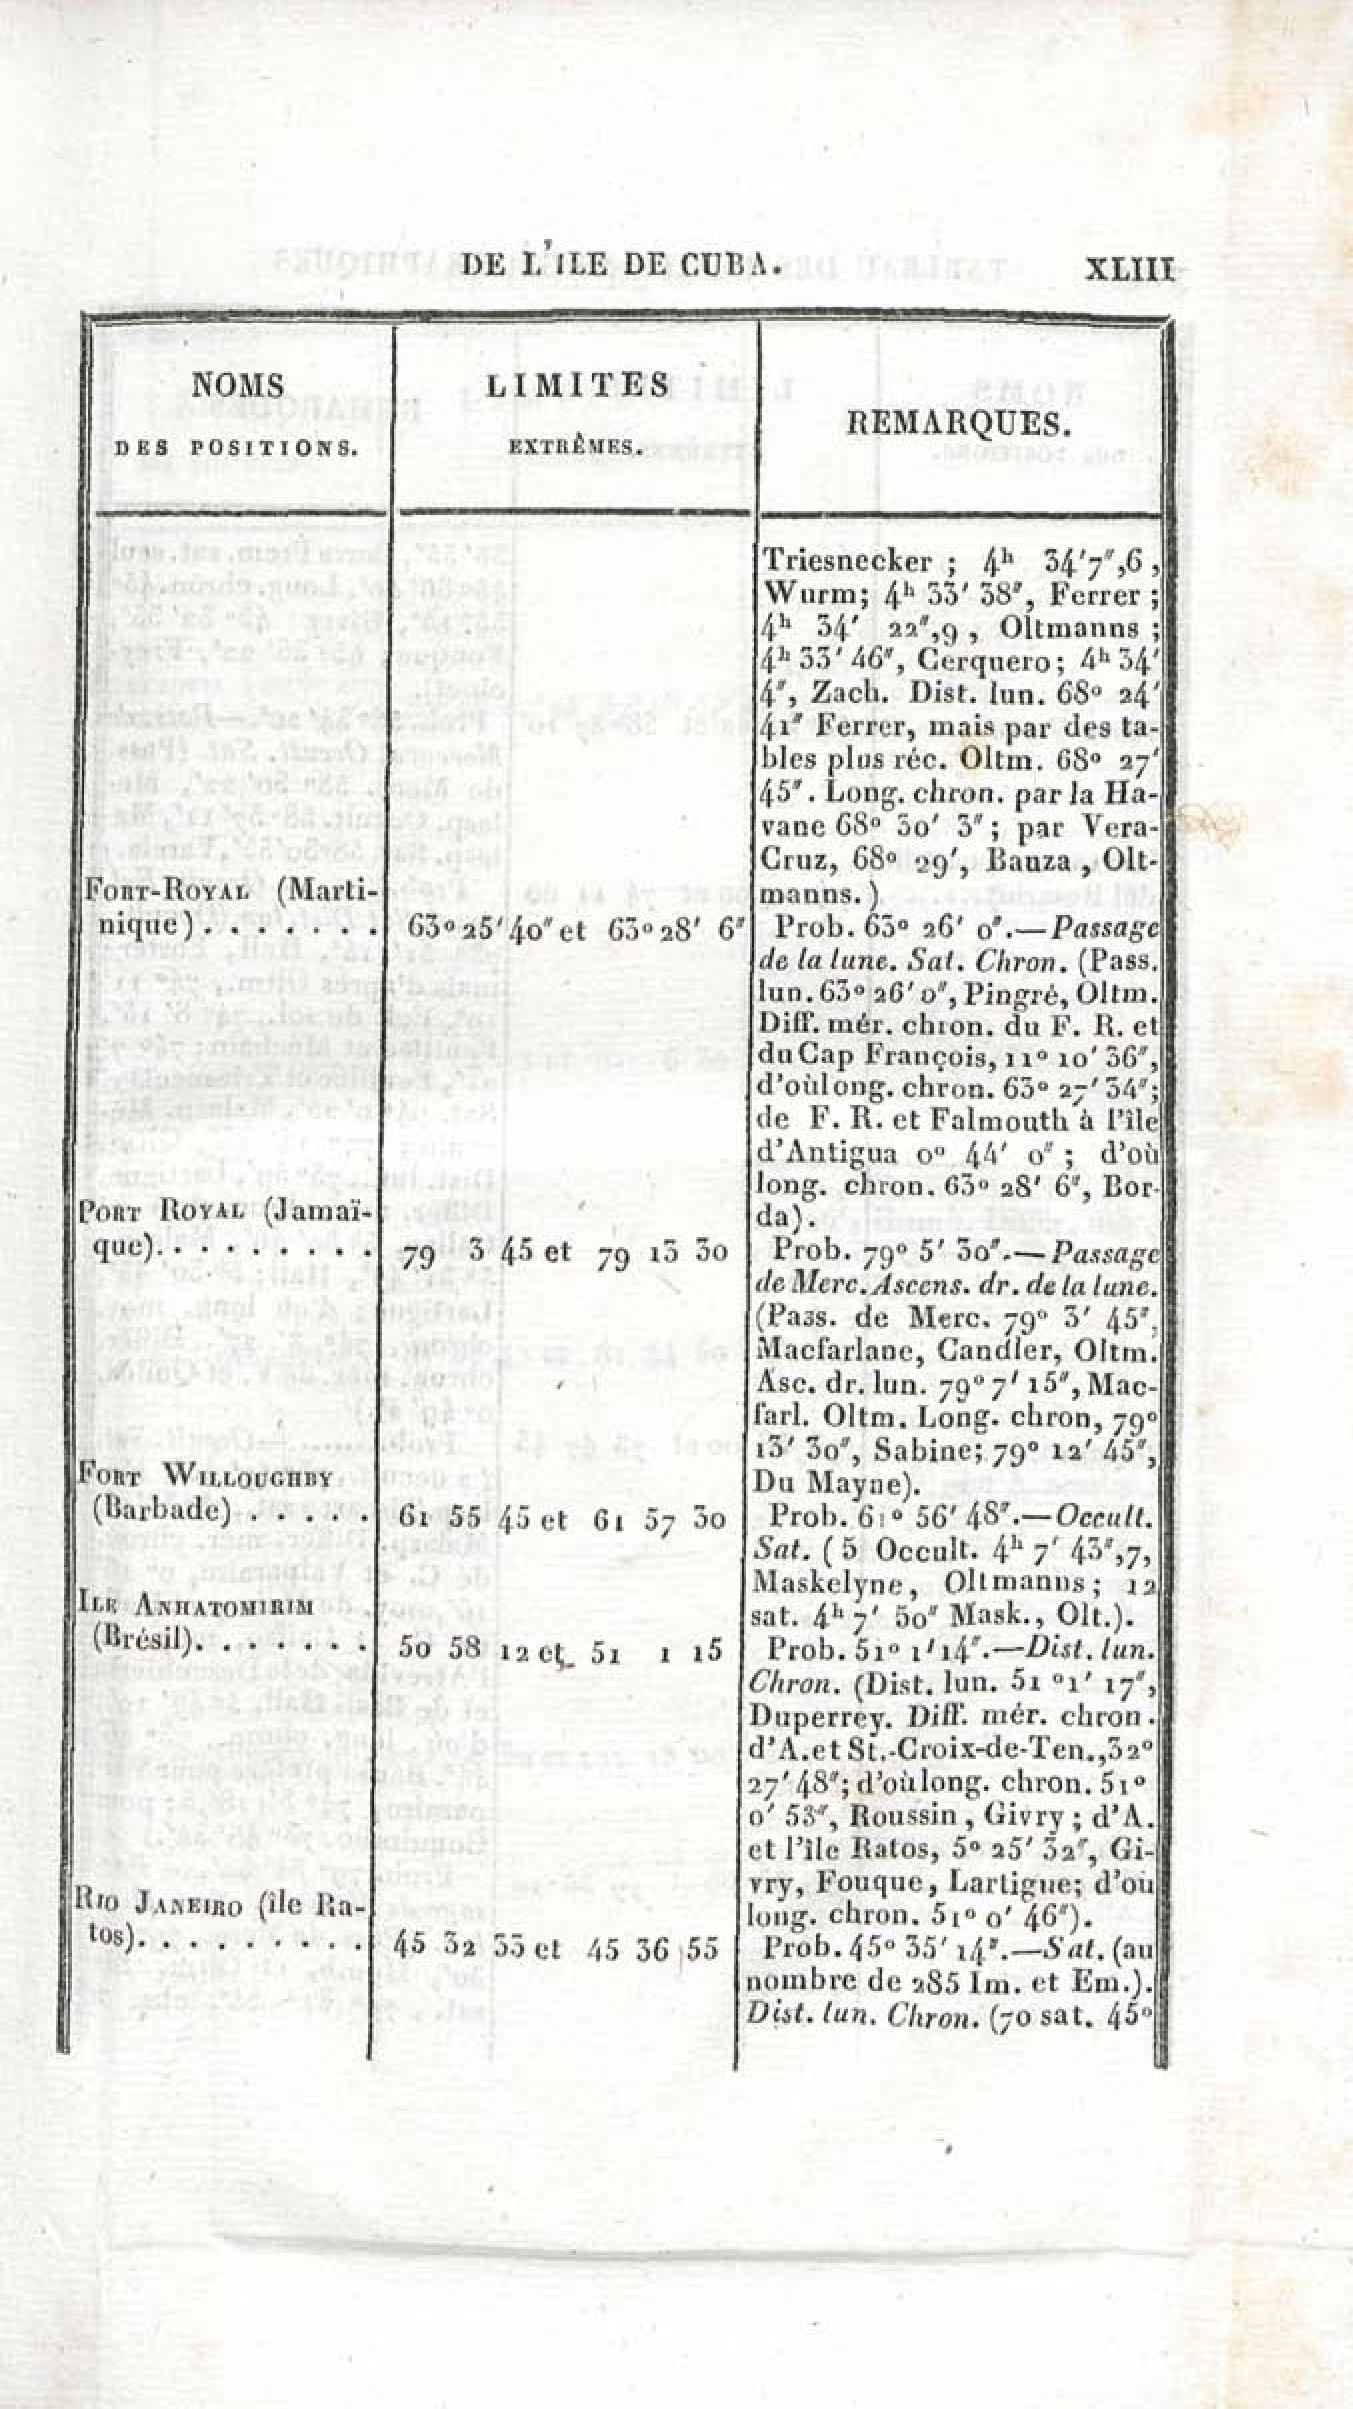 DE L'ILE DE CUBA. XLIII
NOMS
DES POSITIONS.
LIMITES
EXTRÊMES.
REMARQUES.
Triesnecker ; 4h 34'7",6,
Wurm; 4h 33' 38", Ferrer ;
4h 34' 22",9, Oltmanns ;
4h 33' 46", Cerquero; 4h 34'
4", Zach. Dist. lun. 68o 24'
41" Ferrer, mais par des ta-
bles plus réc. Oltm. 68o 27'
45". Long. chron. par la Ha-
vane 68o 30' 3"; par Vera-
Cruz, 68o 29', Bauza, Olt-
manns.)
FORT-ROYAL (Marti-
nique). . . . . . . 63o 25' 40" et 63o 28' 6"
Prob. 63o 26' 0".—Passage
de la lune. Sat. Chron. (Pass.
lun. 63o 26' 0", Pingré, Oltm.
Diff. mér. chron. du F. R. et
du Cap François, 11o 10' 36",
d'oùlong. chron. 63o 27' 34";
de F. R. et Falmouth à l'île
d'Antigua 0o 44' 0" ; d'où
long. chron. 63o 28' 6", Bor-
da).
PORT ROYAL (Jamaï-
que). . . . . . . . . 79 3 45 et 79 13 30
Prob. 79o 5' 30".—Passage
de Merc. Ascens. dr. de la lune.
(Pass. de Merc. 79o 3' 45",
Macfarlane, Candler, Oltm.
Asc. dr. lun. 79o 7' 15", Mac-
farl. Oltm. Long. chron, 79o
13' 30", Sabine; 79o 12' 45",
Du Mayne).
FORT WILLOUGHBY
(Barbade) . . . . . 61 55 45 et 61 57 30
Prob. 61o 56' 48".—Occult.
Sat. ( 5 Occult. 4h 7' 43",7,
Maskelyne, Oltmanns; 12
sat. 4h 7' 50" Mask., Olt.).
ILE ANHATOMIRIM
(Brésil). . . . . . . 50 58 12 et 51 1 15
Prob. 51o 1'14".—Dist. lun.
Chron. (Dist. lun. 51 o1' 17",
Duperrey. Diff. mér. chron.
d'A. et St.-Croix-de-Ten.,32o
27' 48"; d'oùlong. chron. 51o
0' 53", Roussin, Givry ; d'A.
et l'île Ratos, 5o 25' 32", Gi-
vry, Fouque, Lartigue; d'où
long. chron. 51o 0' 46").
RIO JANEIRO (île Ra-
tos). . . . . . . . . 45 32 33 et 45 36 55
Prob. 45o 35' 14".—Sat. (au
nombre de 285 Im. et Em.).
Dist. lun. Chron. (70 sat. 45o